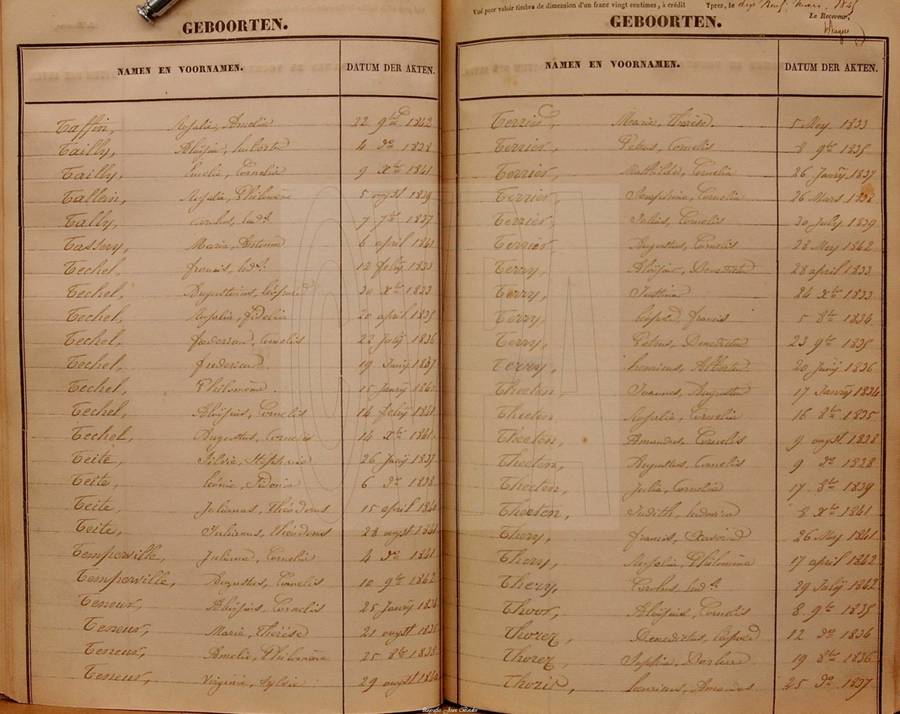 GEBOORTEN.
NAMEN EN VOORNAMEN. DATUM DER AKTEN.
Taffin, Rosalie, Amelie 22 9bre 1842
Tailly, Aloÿsius, 4 do 1838
Tailly, Emelie, Cornelia 9 Xbre 1841
Rosalie, Philomène 5 ougst 1839
Tally, Carolus, Lud. 7 7bre 1837
Maria, 6 april 1841
Techel, Francis, Lud. 12 febry 1833
Techel, Augustinus, Léopold 30 Xbre 1833
Techel, Rosalie, Fidelia 20 april 1835
Techel, Cornelis 22 july 1836
Techel, 19 1837
Techel, Philomène 15 January
Techel, Aloÿsius, Cornelis 14 febry 1841
Techel, Augustus, Cornelis 14 Xbre 1841
Teite, Silvie, Stephanie 26
Teite, Sidonie 6 do 1838
Teite, Julianus, Théodorus 15 april
Teite, Julianus, Théodorus 28 ougst 1841
Temperville, Juliana, Cornelia 4 do 1841
Temperville, Augustus, Cornelis 10 9bre 1842
Teneur, Aloÿsius, Cornelis 25 January
Teneur, Marie, Thérèse 21 ougst
Teneur, Amelie, Philomène 25 8bre 1838
Teneur, Virginie, Sylvie 29 ougst
Vu pour valoir timbre de dimension d'un franc vingt centimes, à crédit Ypres, le dix Neuf Mars 1845
Le Receveur,
GEBOORTEN.
NAMEN EN VOORNAMEN. DATUM DER AKTEN.
Terrier, Marie, Thérèse 5 Mey 1833
Terrier, Petrus, Cornelis 8 9bre 1835
Terrier, Mathilde, Cornelia 26 January 1837
Terrier, Josephina, Cornelia 26 Mars 1838
Terrier, Julius, Cornelis 30 July 1839
Terrier, Augustus, Cornelis 28 Mey 1842
Terry, Aloÿsius, Benedictus 28 april 1833
Terry, Justina 24 Xbre 1833
Terry, Léopold, Francis 5 8bre 1834
Terry, Petrus, Benedictus 23 9bre 1835
Terry, Henricus, Albertus 20 1836
Theeten, Joannes, Augustus 17 January 1834
Theeten, Rosalie, Cornelia 16 8bre 1835
Theeten, Amandus, Cornelis 9 ougst 1838
Theeten, Augustus, Cornelis 9 do 1838
Theeten, Julie, Cornelia 17 8bre 1839
Theeten, Judith, Ludovica 8 Xbre 1841
Thery, Francis, 26 Mey 1841
Thery, Rosalie, Philomène 17 april 1842
Thery, Carolus, Lud. 29 July 1842
Thoor, Aloÿsius, Cornelis 8 9bre 1835
Thorez, Benedictus, Léopold 12 do 1836
Thorez, Sophie, Barbara 19 8bre 1836
Thorez, Henricus, Amandus 25 do 1837